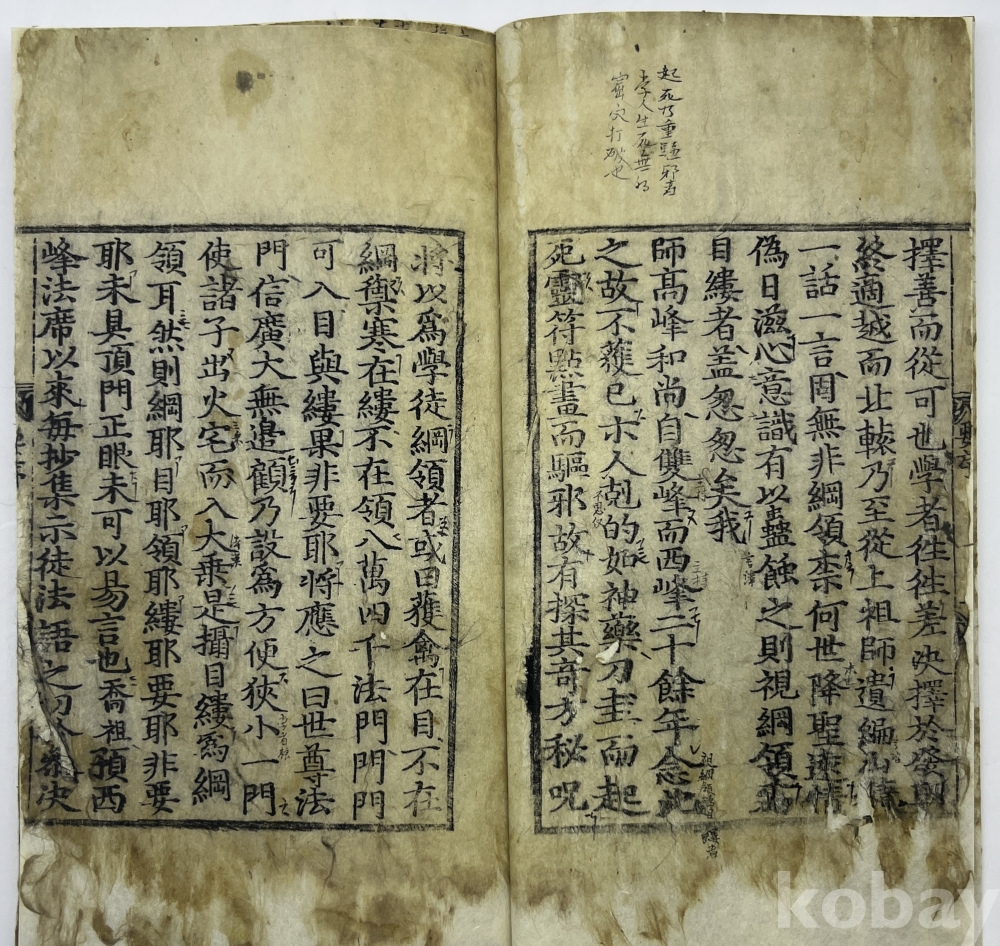 起死乃重驅邪者
李人生死無明
窟穴打破也
擇善而從可也學者徃徃差決擇於發朝
終適越而北轅乃至從上祖師遺編
一話一言固無非綱領柰何世降聖遠情
偽日滋心意識有以蠱蝕之則視綱領爲
目縷者盖怱怱矣我
師高峰和尚自雙峰而西峰二十餘年念此
之故不獲已示人剋的如神藥刀圭而起
死靈符點畫而驅邪故有探其奇方秘呪
將以爲學徒綱領者或曰獲禽在目不在
綱禦寒在縷不在領八萬四千法門門門
可入目與縷果非要耶將應之曰世尊法
門信廣大無邊顧乃設爲方便狹小一門
使諸子出火宅而入大乗是攝目縷爲綱
領耳然則綱耶目耶領耶縷耶要耶非要
耶未具頂門正眼未可以易言也喬祖預西
峰法席以來每抄集示徒法語之切於決
kobay